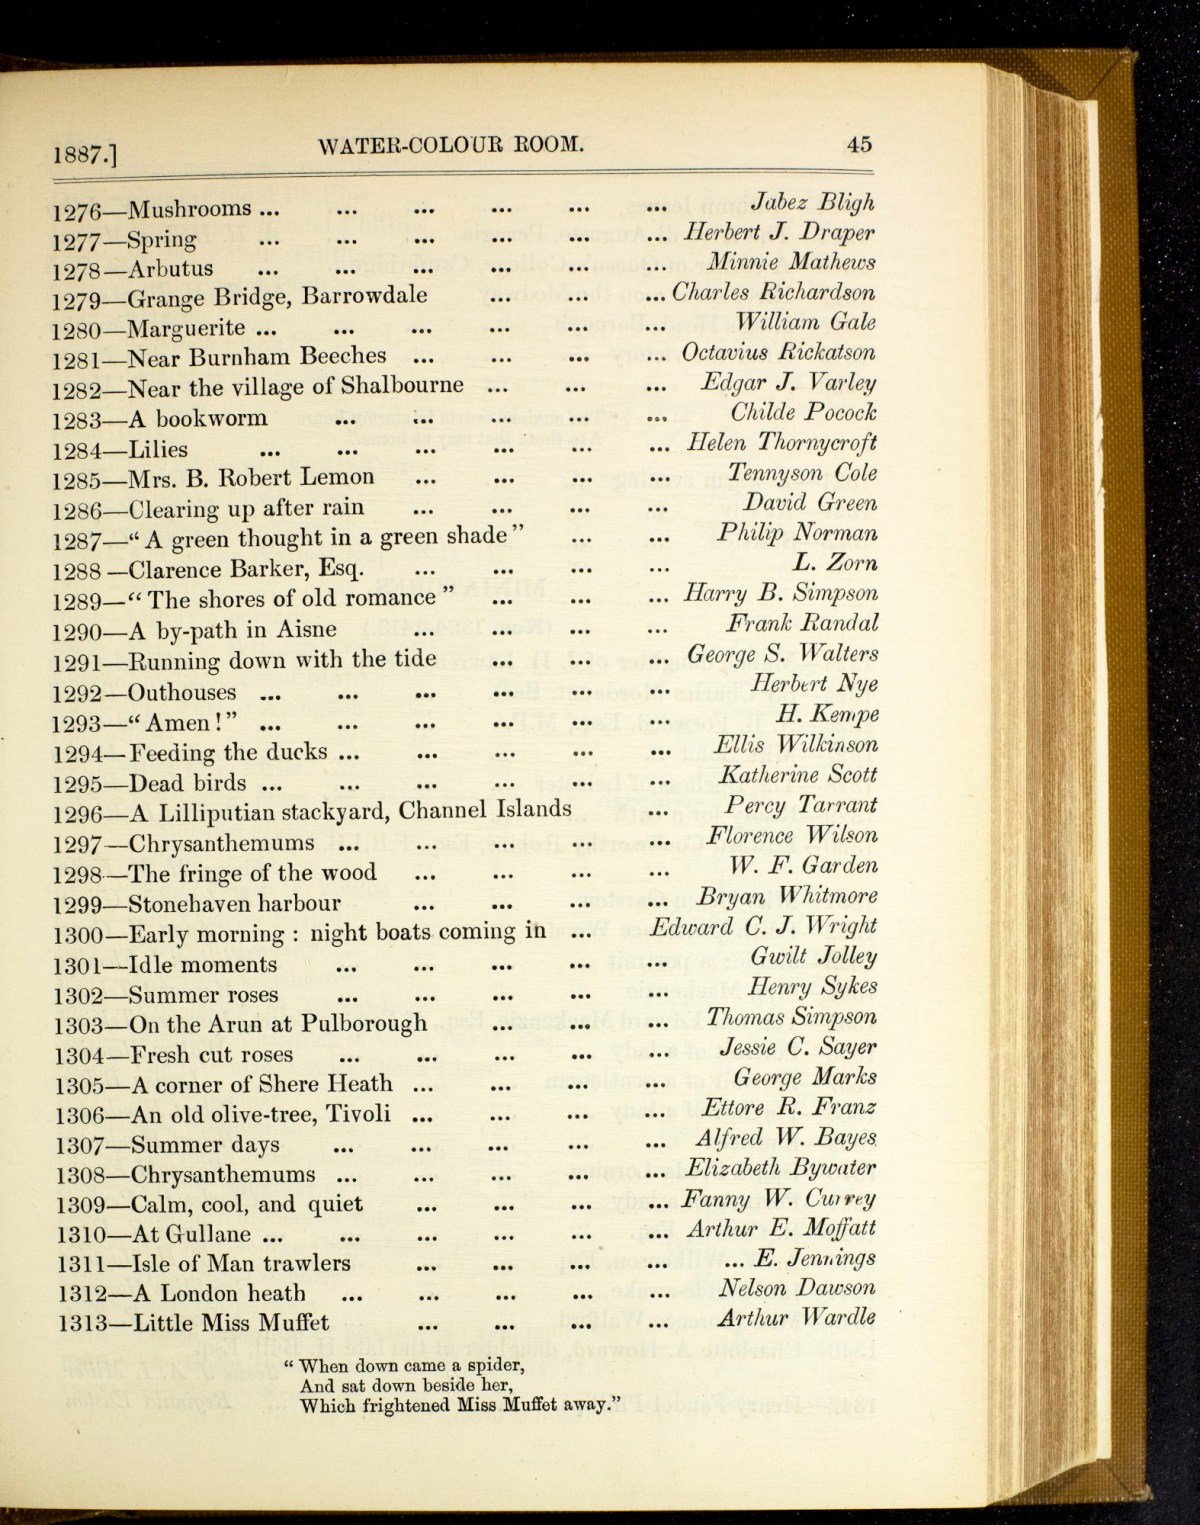 1887.] WATER-COLOUR ROOM. 45
1276—Mushrooms ... ... ... ... ... ... Jabez Bligh
1277—Spring ... ... ... ... ... ... Herbert J. Draper
1278—Arbutus ... ... ... ... ... ... Minnie Mathews
1279—Grange Bridge, Barrowdale ... ... ... Charles Richardson
1280—Marguerite ... ... ... ... ... ... William Gale
1281—Near Burnham Beeches ... ... ... ... Octavius Rickatson
1282—Near the village of Shalbourne ... ... ... Edgar J. Varley
1283—A bookworm ... ... ... ... ... Childe Pocock
1284—Lilies ... ... ... ... ... ... Helen Thornycroft
1285—Mrs. B. Robert Lemon ... ... ... ... Tennyson Cole
1286—Clearing up after rain ... ... ... ... David Green
1287—“ A green thought in a green shade ” ... ... Philip Norman
1288—Clarence Barker, Esq. ... ... ... ... L. Zorn
1289—“ The shores of old romance ” ... ... ... Harry B. Simpson
1290—A by-path in Aisne ... ... ... ... Frank Randal
1291—Running down with the tide ... ... ... George S. Walters
1292—Outhouses ... ... ... ... ... ... Herbert Nye
1293—“ Amen ! ” ... ... ... ... ... ... H. Kempe
1294—Feeding the ducks ... ... ... ... ... Ellis Wilkinson
1295—Dead birds ... ... ... ... ... ... Katherine Scott
1296—A Lilliputian stackyard, Channel Islands ... Percy Tarrant
1297—Chrysanthemums ... ... ... ... ... Florence Wilson
1298—The fringe of the wood ... ... ... ... W. F. Garden
1299—Stonehaven harbour ... ... ... ... Bryan Whitmore
1300—Early morning : night boats coming in ... Edward C. J. Wright
1301—Idle moments ... ... ... ... ... Gwilt Jolley
1302—Summer roses ... ... ... ... ... Henry Sykes
1303—On the Arun at Pulborough ... ... ... Thomas Simpson
1304—Fresh cut roses ... ... ... ... ... Jessie C. Sayer
1305—A corner of Shere Heath ... ... ... ... George Marks
1306—An old olive-tree, Tivoli ... ... ... ... Ettore R. Franz
1307—Summer days ... ... ... ... ... Alfred W. Bayes
1308—Chrysanthemums ... ... ... ... ... Elizabeth Bywater
1309—Calm, cool, and quiet ... ... ... ... Fanny W. Currey
1310—At Gullane ... ... ... ... ... ... Arthur E. Moffatt
1311—Isle of Man trawlers ... ... ... ... ... E. Jennings
1312—A London heath ... ... ... ... ... Nelson Dawson
1313—Little Miss Muffet ... ... ... ... Arthur Wardle
“ When down came a spider,
And sat down beside her,
Which frightened Miss Muffet away.”